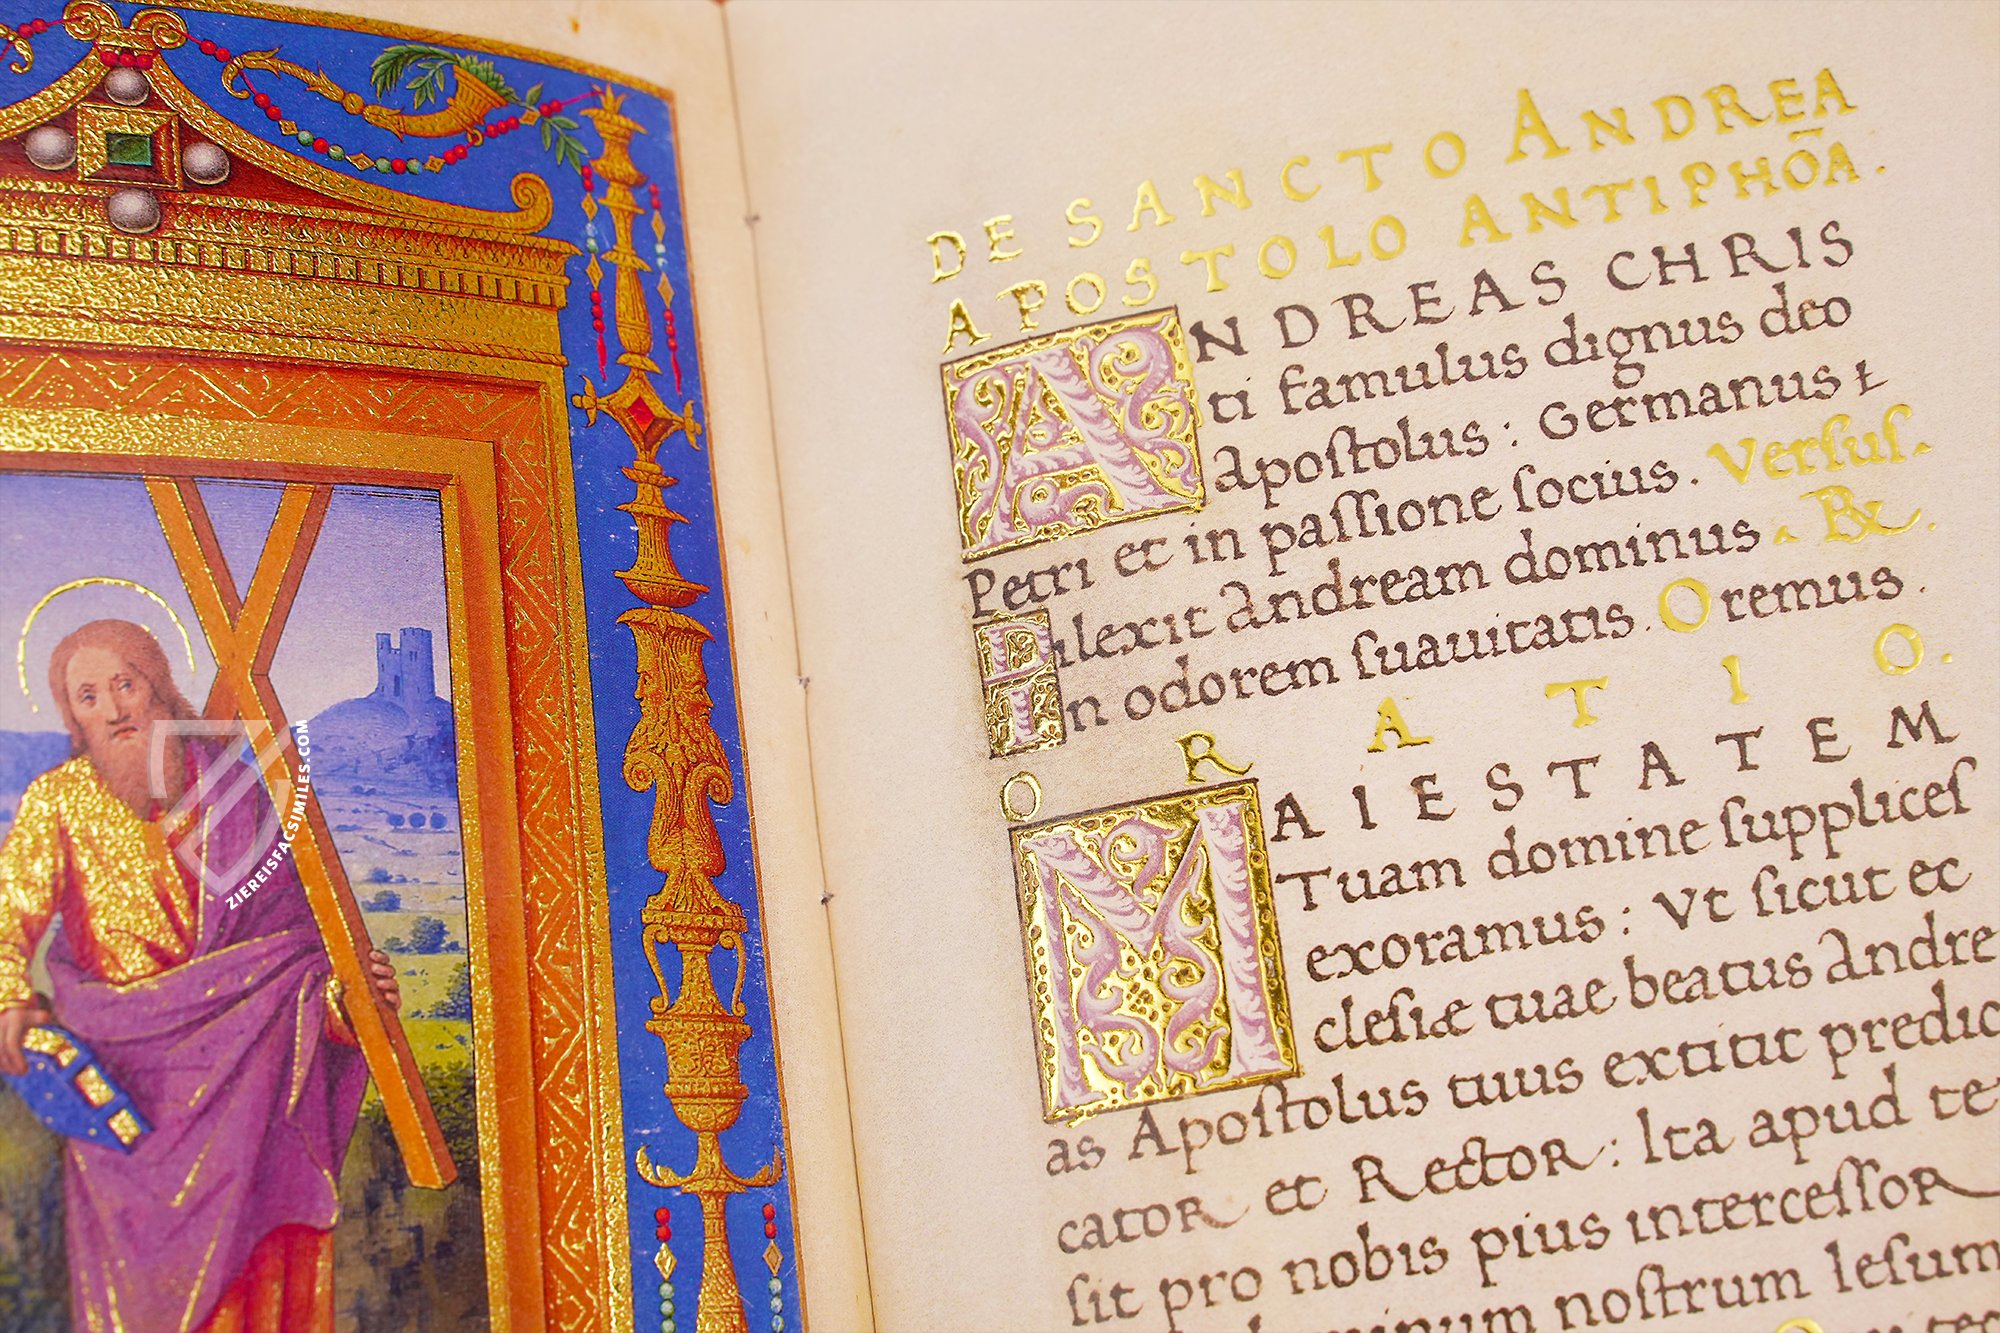 DE SANCTO ANDREA
APOSTOLO ANTIPHŌA.
ANDREAS CHRIS
ti famulus dignus deo
Apoſtolus: Germanus &
Petri et in paſſione ſocius. Verſuſ.
Dilexit Andream dominus. ℞.
In odorem ſuauitatis. Oremus.
ORATIO.
MAIESTATEM
Tuam domine ſuppliceſ
exoramus: Vt ſicut ec
cleſiæ tuae beatus Andre
as Apoſtolus tuus extitit predic
cator et Rector: Ita apud te
ſit pro nobis pius interceſſor
dominum noſtrum Ieſum
ZIEREISFACSIMILES.COM